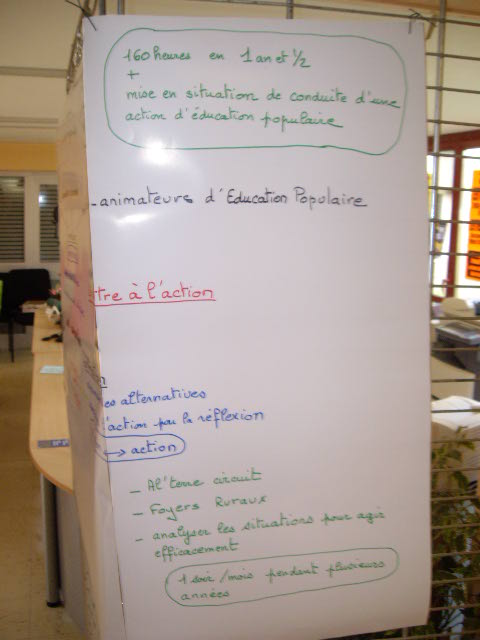 160 heures en 1 an et 1/2
+
mise en situation de conduite d'une
action d'éducation populaire
-animateurs d'Education Populaire
tre à l'action
n
es alternatives
l'action par la réflexion
→ action
- Al'terre circuit
- Foyers Ruraux
- analyser les situations pour agir
efficacement
1 soir/mois pendant plusieurs
années